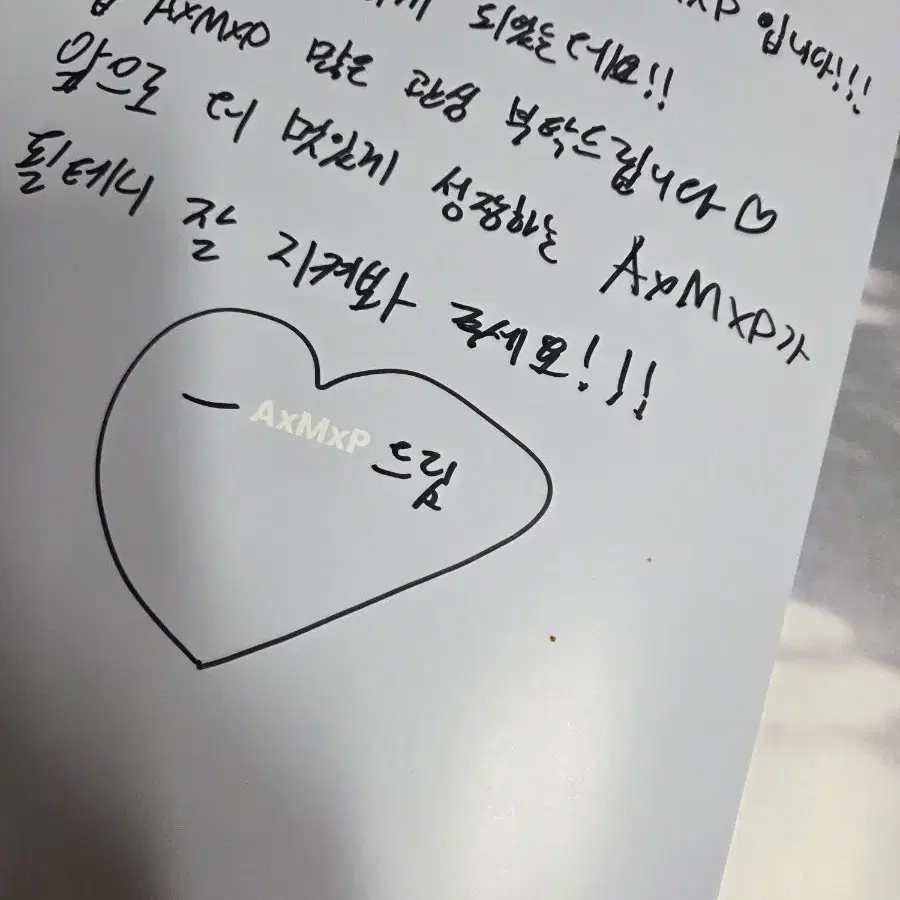 AxMxP 입니다!!!
되었는데요!!
AxMxP 많은 관심 부탁드립니다♡
앞으로 더 멋있게 성장하는 AxMxP가
될테니 잘 지켜봐 주세요!!!
— AxMxP 드림